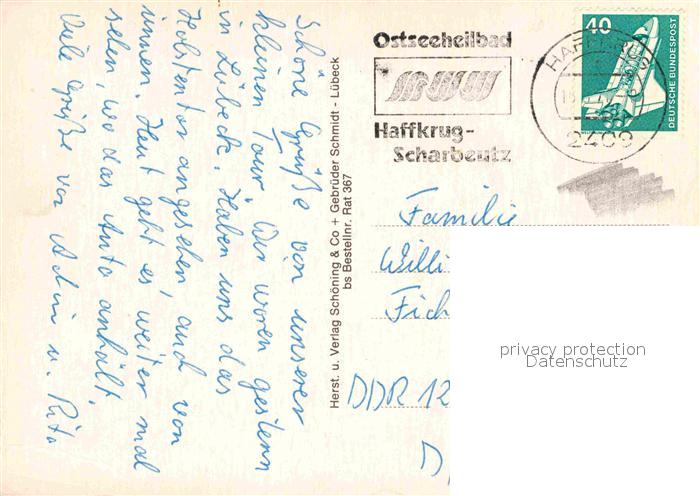 Schöne Grüße von unserer
kleinen Tour. Wir waren gestern
in Lübeck. Haben uns das
Holstentor angesehen, auch von
innen. Heut geht es weiter mal
sehen, wo das Auto anhält.
Viele Grüße von Achim u. Rita
Herst. u. Verlag Schöning & Co + Gebrüder Schmidt - Lübeck
bs Bestellnr. Rat 367
Ostseeheilbad
Haffkrug-
Scharbeutz
2409
40
DEUTSCHE BUNDESPOST
Familie
Willi
Fich
DDR 12
privacy protection
Datenschutz